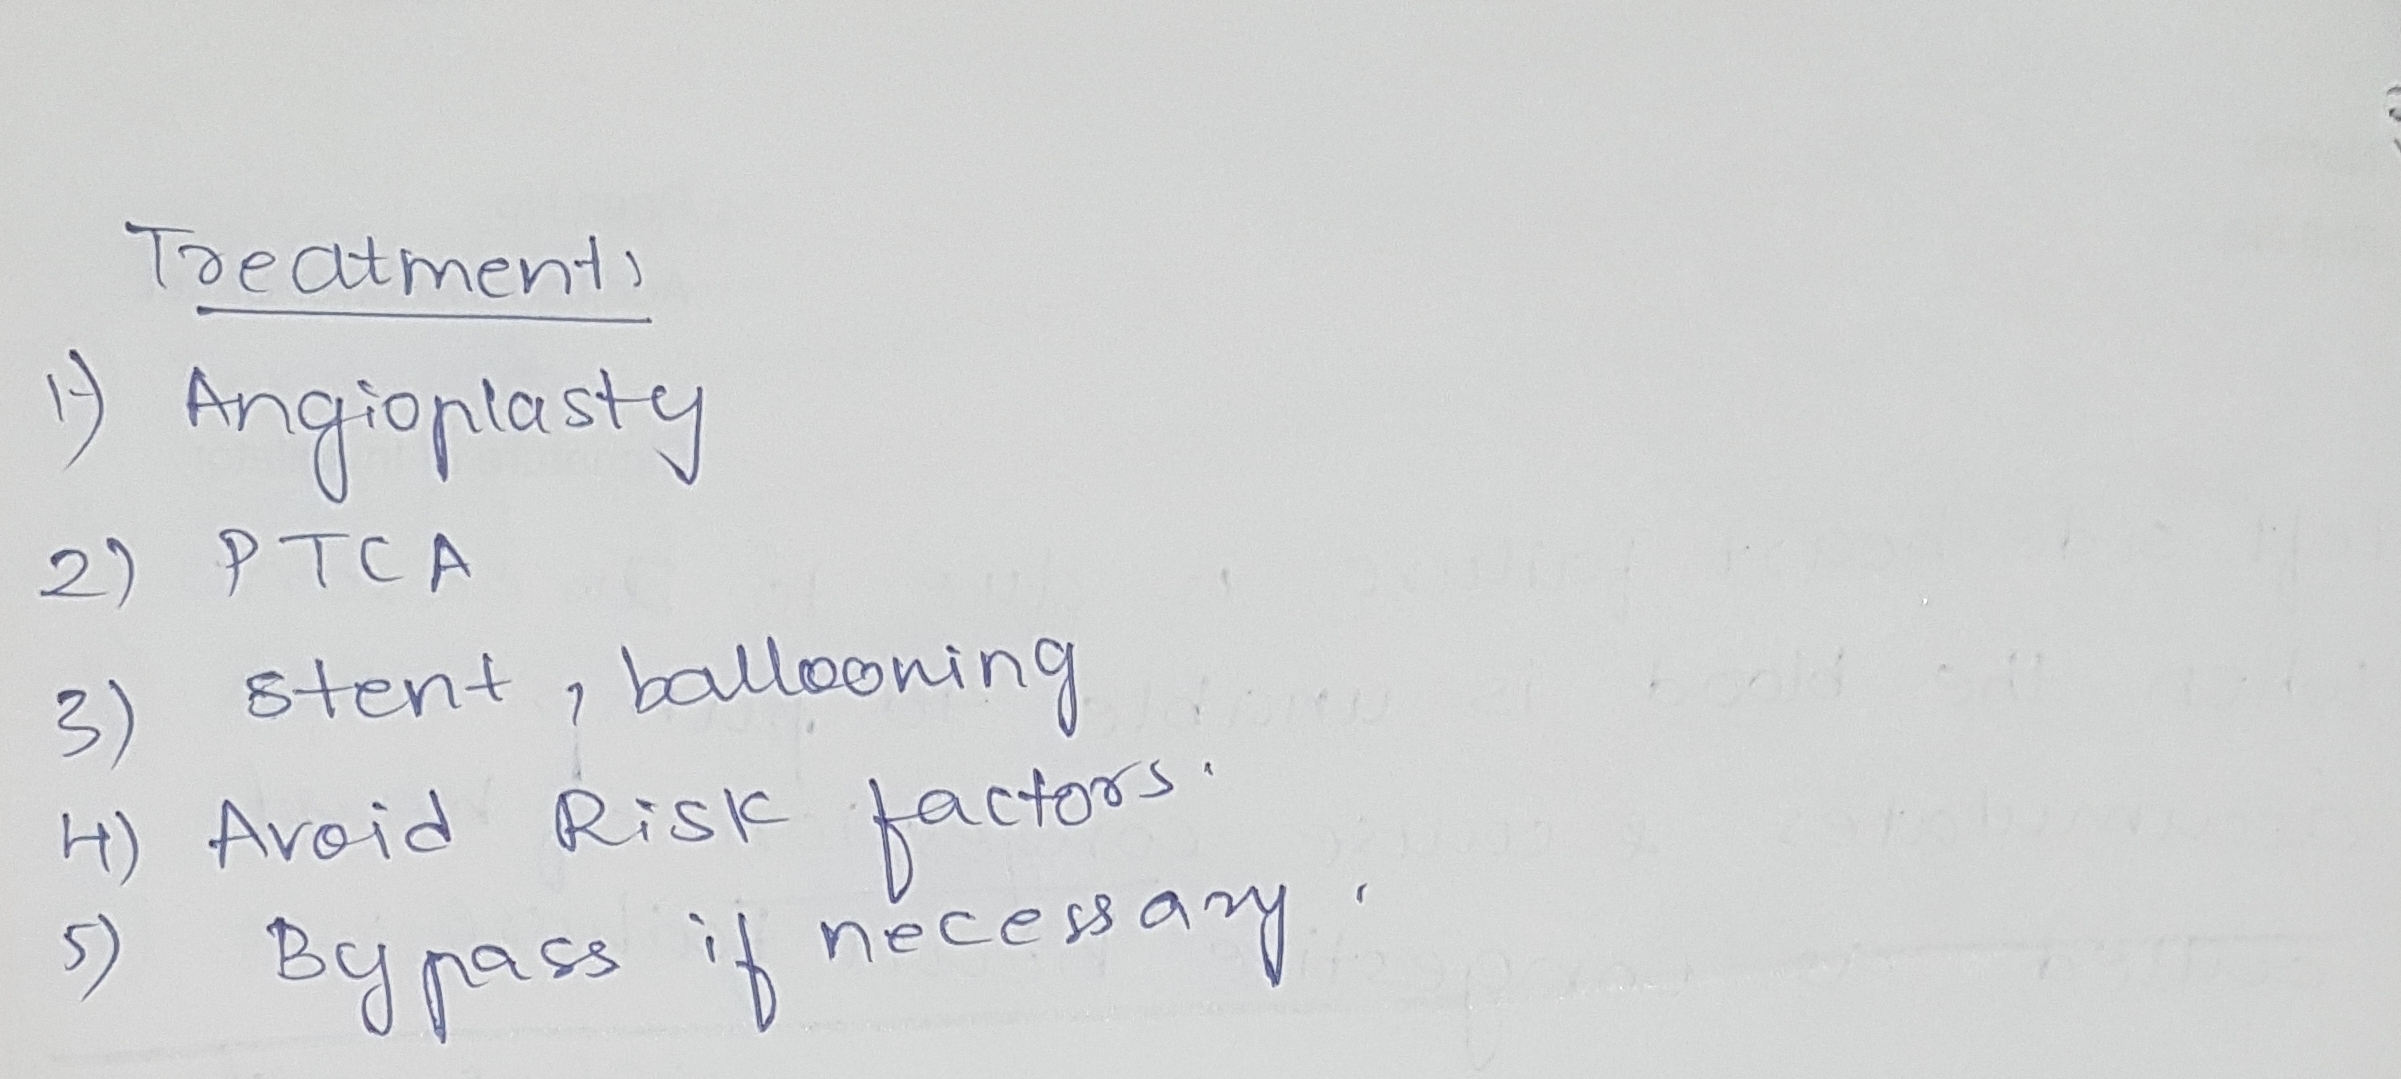 Treatment:
1) Angioplasty
2) PTCA
3) stent, ballooning
4) Avoid Risk factors.
5) Bypass if necessary.